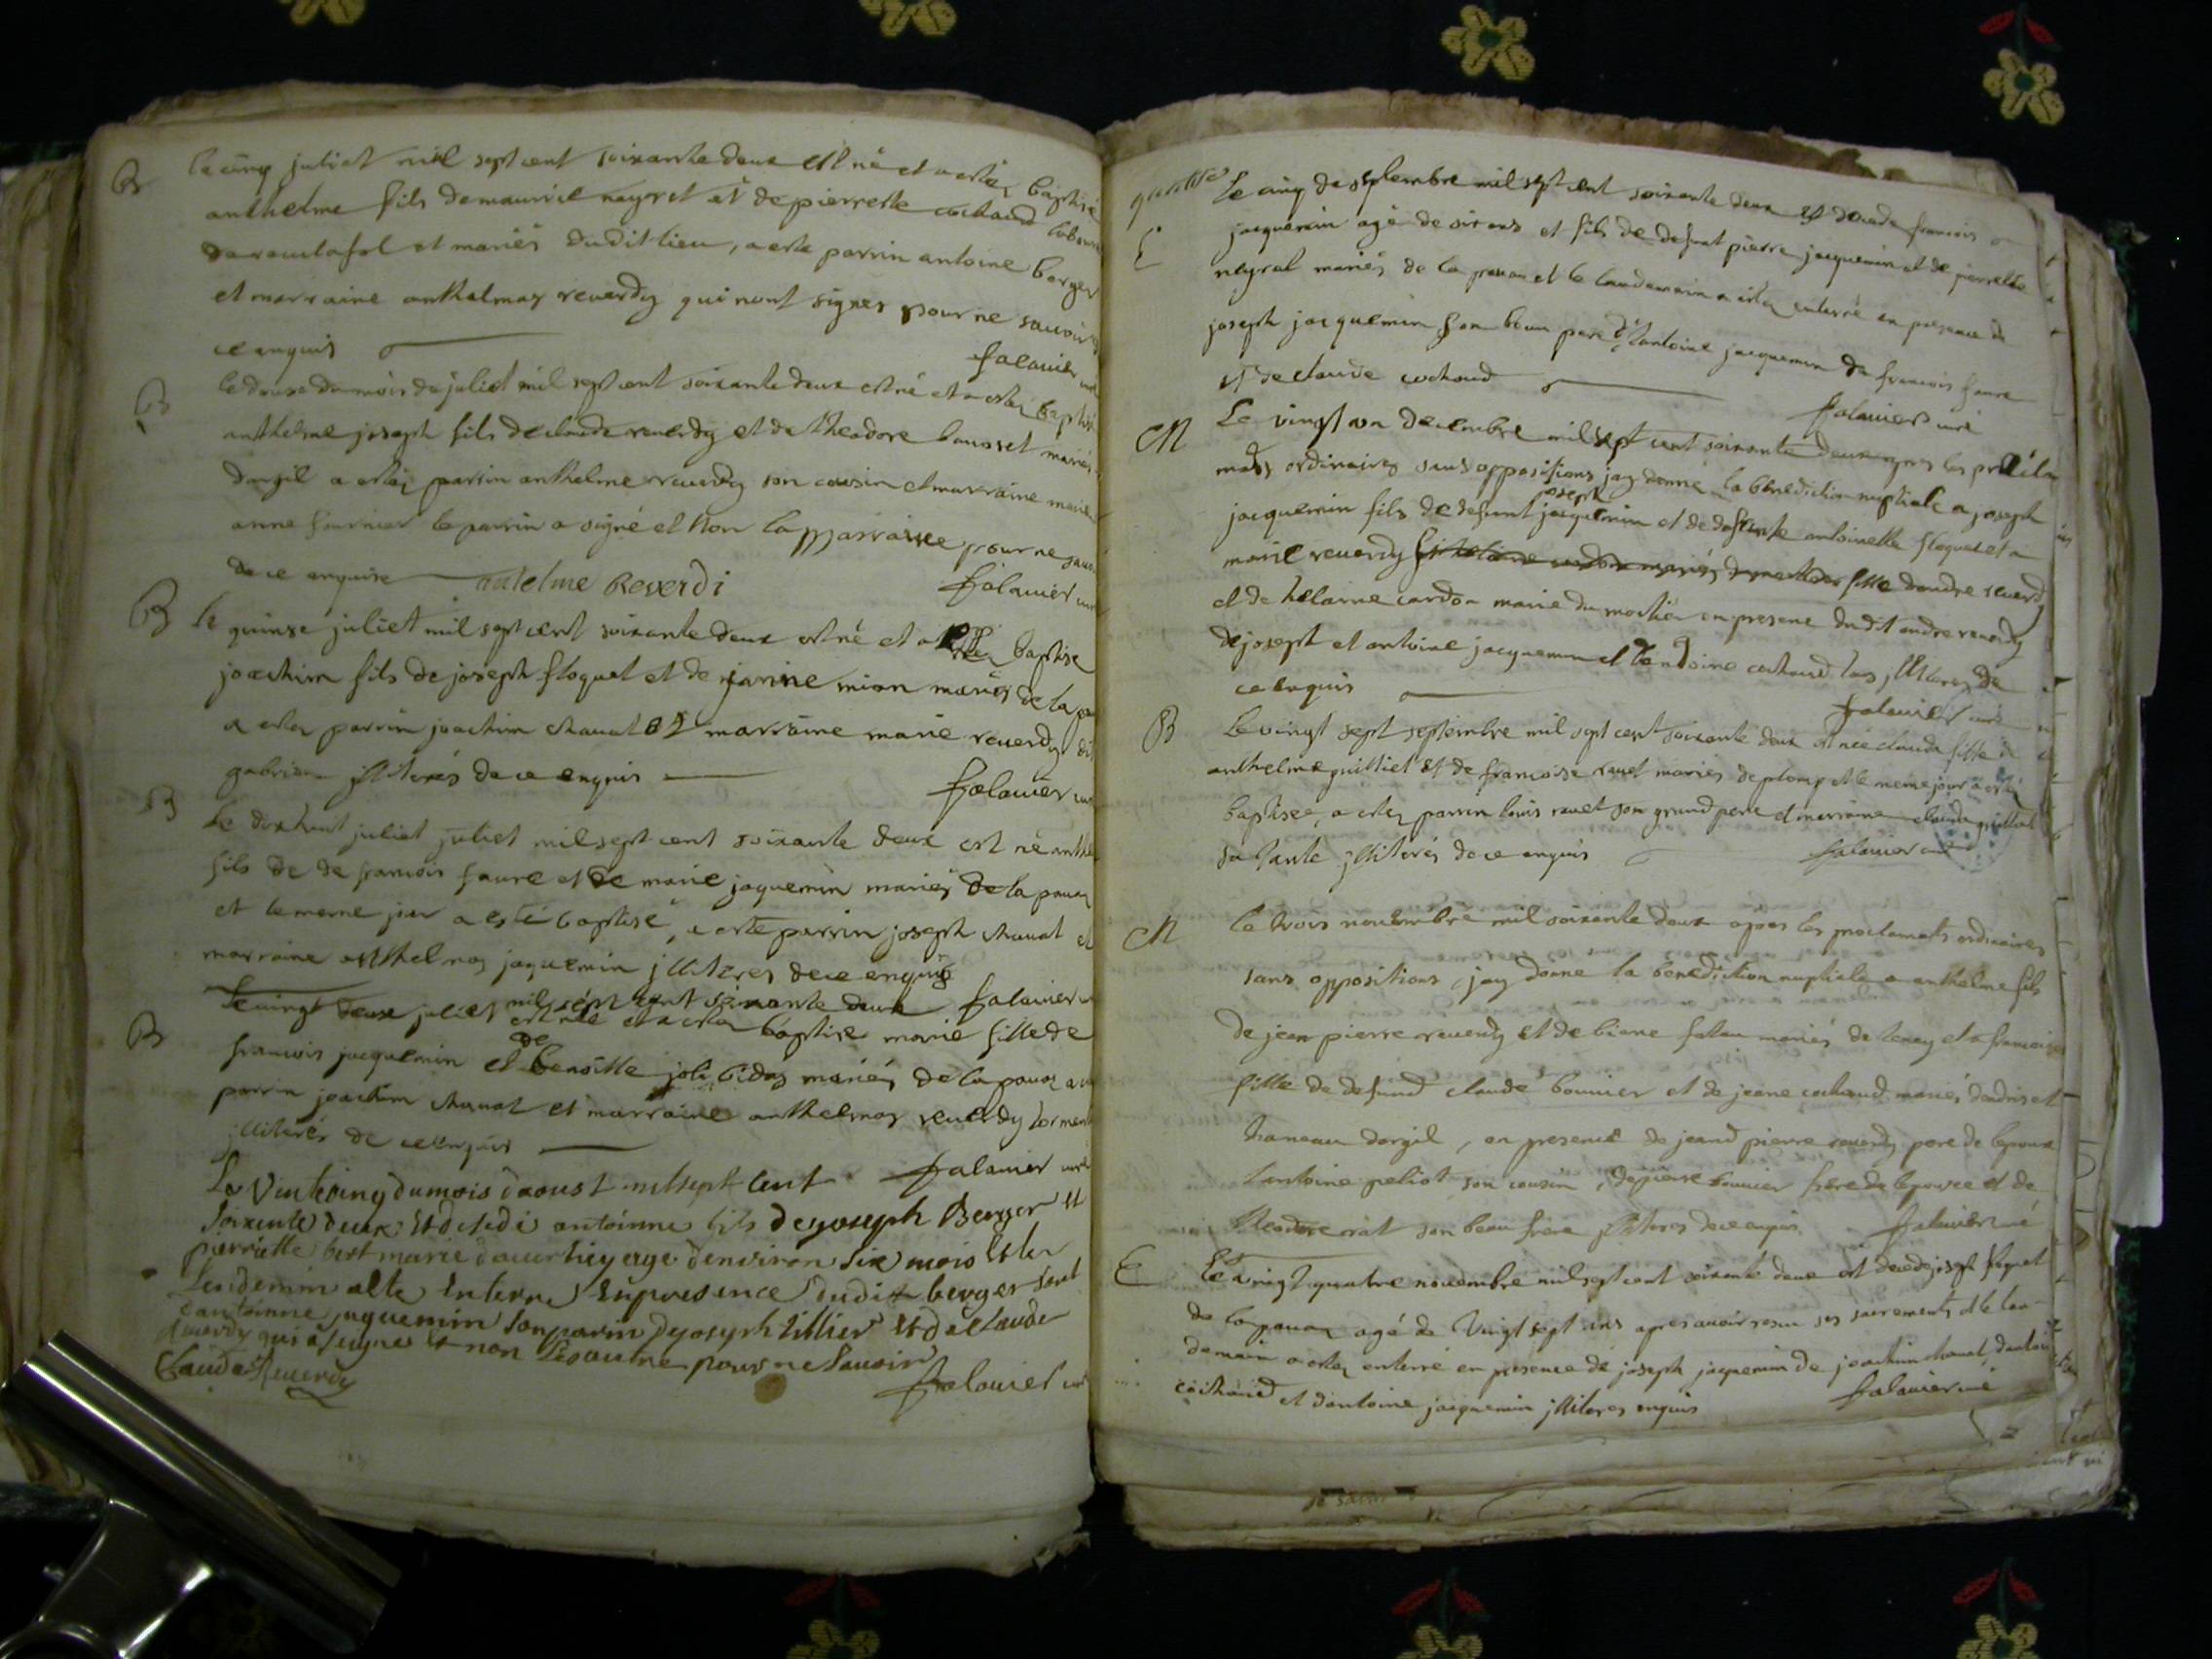 B
le cinq juliet mil sept cent soixante deux est né et a estez baptisé
anthelme fils de maurice neyret et de pierrette cochaud
et mariés dudit lieu, a este parrin antoine berger
et marraine anthelmaz reverdy qui nont signes pour ne savoir
ce enquis
falavier curé
B
le douse du mois de juliet mil sept cent soixante deux est né et a estez baptisé
anthelme joseph fils de claude reverdy et de theodore bausset mariés
dorgil a estez parrin anthelme reverdy son cousin et marraine marie
anne fournier le parrin a signé et non la marraine pour ne savoir
de ce enquise antelme Reverdi
falavier curé
B
le quinse juliet mil sept cent soixante deux est né et a estez baptise
joachim fils de joseph floquet et de janine mion mariés de la
a estez parrin joachim chavat et marraine marie reverdy
illiterés de ce enquis
falavier curé
B
Le dixhuit juliet juliet mil sept cent soixante deux est né
fils de de francois faure et de marie jaquemin mariés de la
et le meme jour a esté baptisé, a este parrin joseph chavat et
marraine anthelmaz jaquemin illiteres de ce enquis
falavier
B
Le vingt deux juliet mil sept cent soixante deux
est née et a estez baptise marie fille de
francois jacquemin et de benoitte joli mariés de la
parrin joachim chavat et marraine anthelmaz reverdy
illiterés de ce enquis
falavier curé
Le vintcinq du mois daoust mil sept cent
soixente deux est desedé antoinne fils de yoseph Berger et
pierriette marié age denviron six mois et le
lendemin a este enterre en presence dudit berger
dantoinne jaquemin son parin de yoseph tillier et de claude
Reverdy qui a signe et non les autre pour ne savoir
Claude Reverdy
falavier curé
E
Le cinq de septembre mil sept cent soixante deux est décédé francois
jacquemin agé de six ans et fils de defunt pierre jacquemin et de pierrette
neyret mariés de la et le landemain a estez enterré en presence de
joseph jacquemin son beau pere dantoine jacquemin de francois faure
et de claude cochaud
falavier curé
M
Le vingt un decembre mil sept cent soixante deux apres les procla
mats ordinaires sans oppositions jay donné la benediction nuptiale a joseph
jacquemin fils de defunt joseph jacquemin et de defunte antoinette floquet et a
marie reverdy fille dandre reverdy
et de helaine cardon mariés du mortier en presence dudit andre reverdy
de joseph et antoine jacquemin et dantoine cochaud tous illiteres de
ce enquis
falavier curé
B
Le vingt sept septembre mil sept cent soixante deux est née claude fille de
anthelme guilliet et de francoise ravet mariés de et le meme jour a esté
baptisée, a estez parrin louis ravet son grand pere et marraine claude guilliet
sa tante illiterés de ce enquis
falavier curé
M
le trois novembre mil soixante deux apres les proclamats ordinaires
sans oppositions, jay donne la benediction nuptiale a anthelme fils
de jean pierre reverdy et de mariés de tenay et a francoise
fille de defund claude bonnier et de jeane cochaud mariés
hameau dorgil, en presence de jeand pierre reverdy pere de lepoux
dantoine peliot son cousin, de pierre bonnier frere de lepouse et de
theodore son beau frere illiteres de ce enquis
falavier curé
E
Le vingt quatre novembre mil sept cent soixante deux est décédé joseph floquet
de la agé de vingt sept ans apres avoir resu ses sacrements et le lan-
demain a estez enterré en presence de joseph jacquemin de joachim chavat
cochaud et dantoine jacquemin illiteres enquis
falavier curé